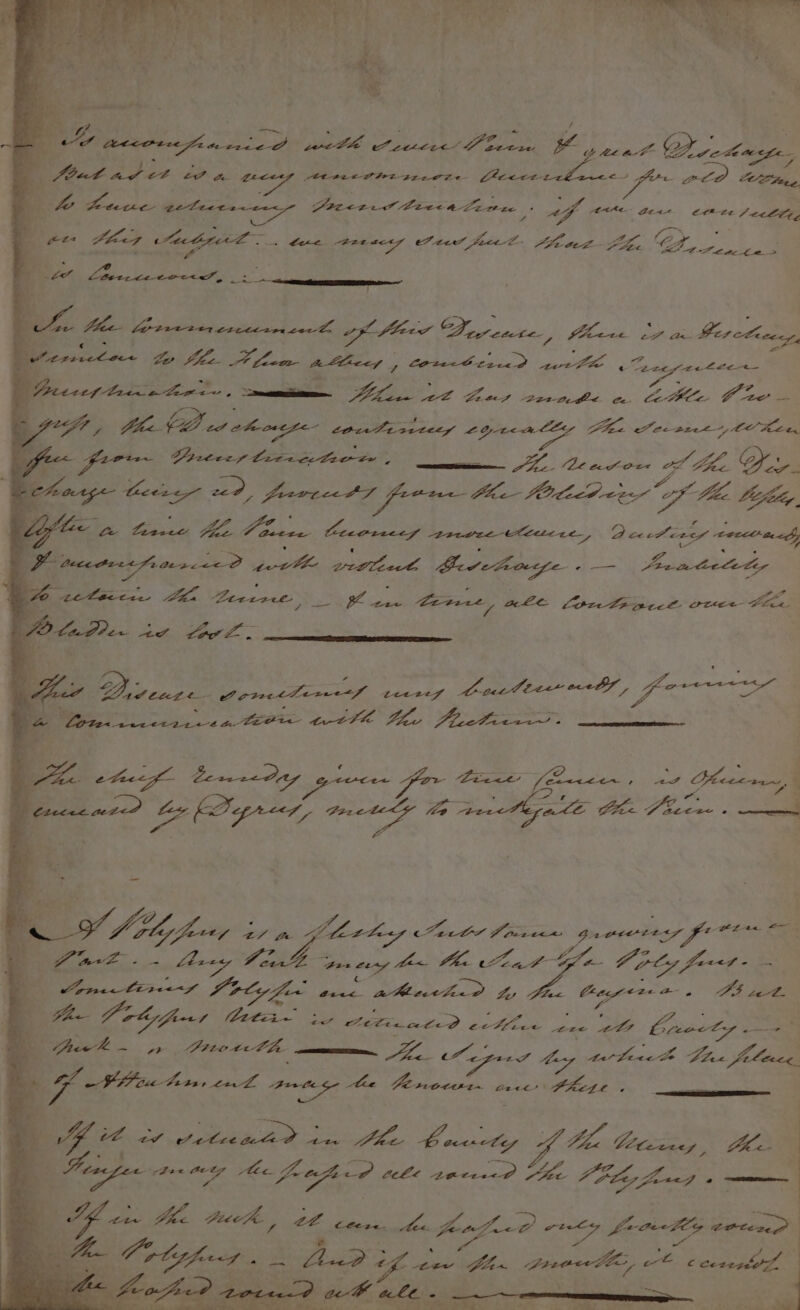 Is accompanied with severe Pain & great Discharge,
But as it is a very uncommon Occurrence for old Wome
to have returning Menstruation; if we are consulted
on this Subject.. we may suspect that the Disease
is Cancerous.
In the Commencement of this Disease, there is a Discharge
Similar to the Fluor albus, combined with Irregular
Menstruation. When it has made a little Pro-
-gress, the Discharge continues equally the same, when
free from Menstruation. The reason of the Dis-
-charge being red, proceeds from the Bleeding of the Vessels.
After a time the Pain becomes more severe, Darting inwards,
& accompanied with violent Discharge. — Inability
to retain the Urine, — & in time, all Controul over the
Bladder is lost.
This Disease sometimes runs backwards, forming
a Communication with the Rectum.
The chief Remedy given for true Cancer, is Opium,
encreased by Degrees, merely to mitigate the Pain.
A Polypus is a fleshy Substance growing from a
Part. - Any Part may be the Seat of a Polypus. -
Sometimes Polypi are attached to the Vagina. But
the Polypus Uteri is situated either in its Cavity —
Neck - or Mouth The Signs by which the place
of Attachment may be known are these.
If it is situated in the Cavity of the Uterus, the
Finger may be passed all round the Polypus.
If in the neck, it can be passed only partly round
the Polypus. - And if in the mouth, it cannot
be passed round at all.